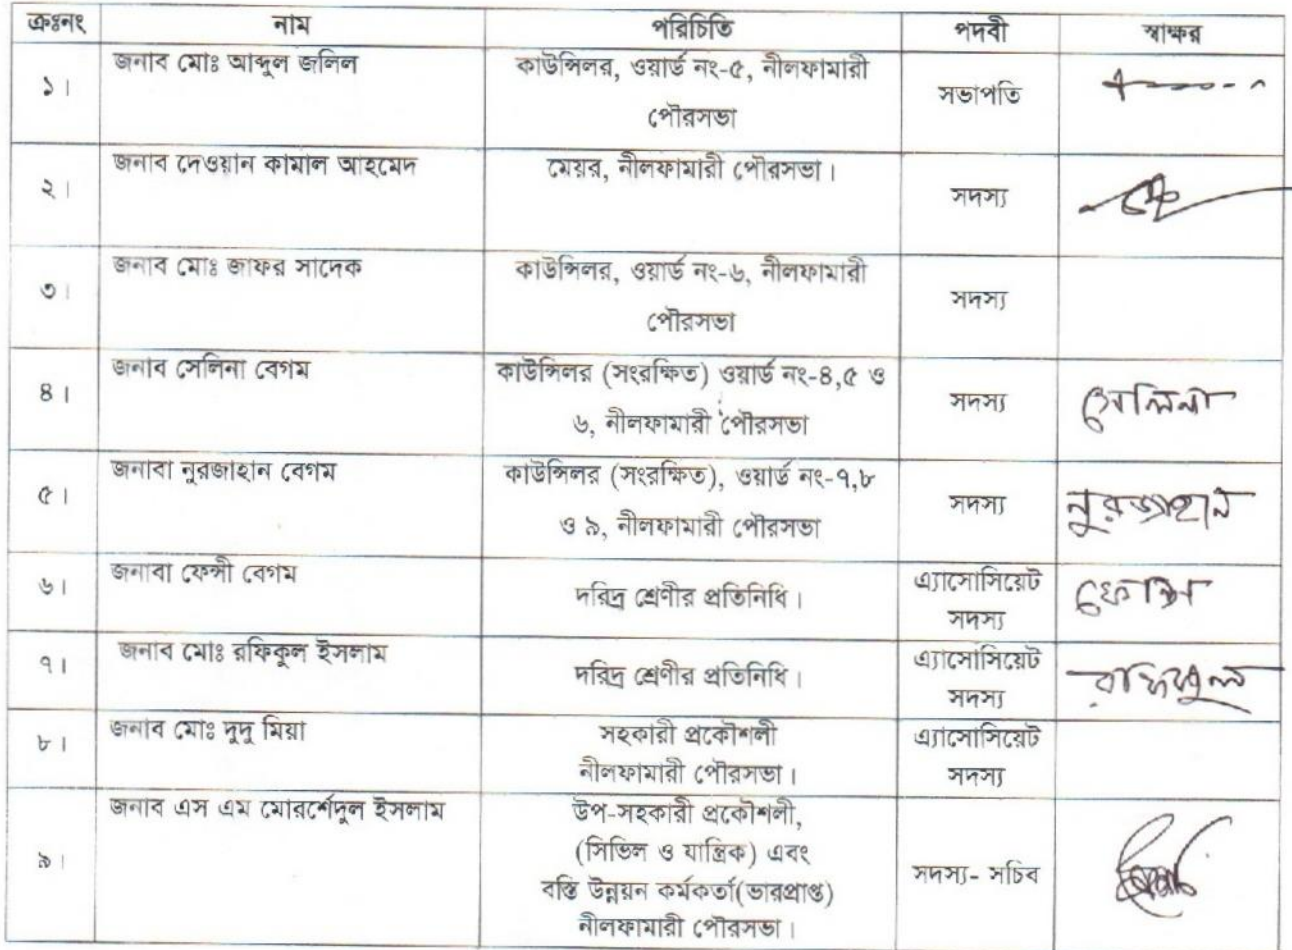 ক্রঃনং নাম পরিচিতি পদবী স্বাক্ষর
১। জনাব মোঃ আব্দুল জলিল কাউন্সিলর, ওয়ার্ড নং-৫, নীলফামারী
পৌরসভা সভাপতি
২। জনাব দেওয়ান কামাল আহমেদ মেয়র, নীলফামারী পৌরসভা। সদস্য
৩। জনাব মোঃ জাফর সাদেক কাউন্সিলর, ওয়ার্ড নং-৬, নীলফামারী
পৌরসভা সদস্য
৪। জনাব সেলিনা বেগম কাউন্সিলর (সংরক্ষিত) ওয়ার্ড নং-৪,৫ ও
৬, নীলফামারী পৌরসভা সদস্য সেলিনা
৫। জনাবা নুরজাহান বেগম কাউন্সিলর (সংরক্ষিত), ওয়ার্ড নং-৭,৮
ও ৯, নীলফামারী পৌরসভা সদস্য নুরজাহান
৬। জনাবা ফেন্সী বেগম দরিদ্র শ্রেণীর প্রতিনিধি। এ্যাসোসিয়েট
সদস্য ফেন্সি
৭। জনাব মোঃ রফিকুল ইসলাম দরিদ্র শ্রেণীর প্রতিনিধি। এ্যাসোসিয়েট
সদস্য রফিকুল
৮। জনাব মোঃ দুদু মিয়া সহকারী প্রকৌশলী এ্যাসোসিয়েট
নীলফামারী পৌরসভা। সদস্য
৯। জনাব এস এম মোরর্শেদুল ইসলাম উপ-সহকারী প্রকৌশলী,
(সিভিল ও যান্ত্রিক) এবং সদস্য- সচিব
বস্তি উন্নয়ন কর্মকর্তা(ভারপ্রাপ্ত)
নীলফামারী পৌরসভা।